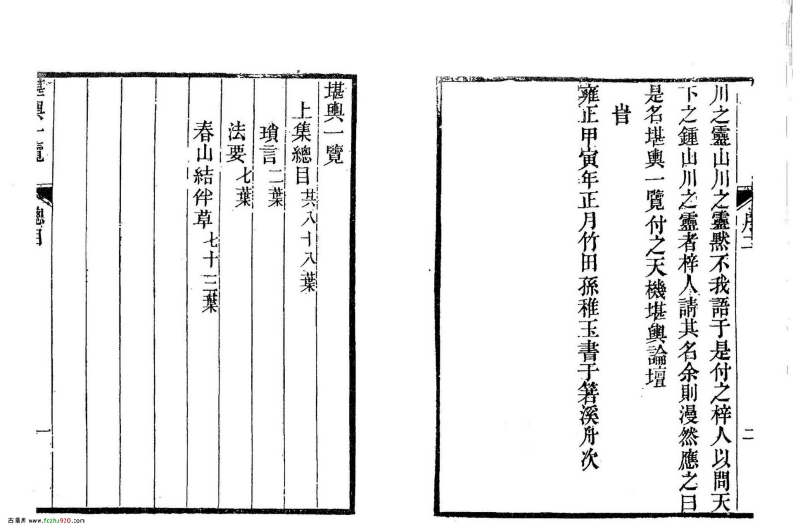 川之靈山川之靈黙不我語于是付之梓人以問天
下之鍾山川之靈者梓人請其名余則漫然應之曰
是名堪輿一覽付之天機堪輿論壇
旹
雍正甲寅年正月竹田孫稚玉書于箬溪舟次
序
二
堪輿一覽
上集總目共八十八葉
瑣言二葉
法要七葉
春山結伴草七十三葉
堪輿一覽
總目
一
www.fczhu920.com